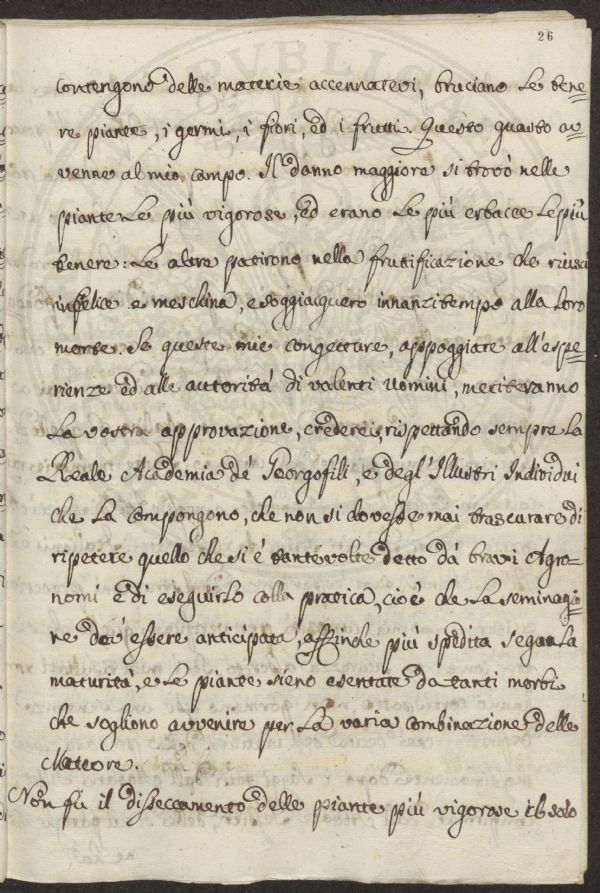 26
contengono delle materie accennatevi, bruciano le tene=
re piante, i germi, i fiori, ed i frutti. Questo guasto av=
venne al mio campo. Il danno maggiore si trovò nelle
piante le più vigorose, ed erano le più erbacee le più
tenere: le altre patirono nella fruttificazione che riuscì
infelice e meschina, e soggiacquero innanzi tempo alla loro
morte. Se queste mie congetture, appoggiate all'espe=
rienze ed alle autorità di valenti Uomini, meriteranno
la vostra approvazione, crederei, rispettando sempre la
Reale Academia de' Georgofili, e degl'Illustri Individui
che la compongono, che non si dovesse mai trascurare di
ripetere quello che si è tante volte detto dà bravi Agro=
nomi e di eseguirlo colla pratica, cioè che la seminagio=
ne dei essere anticipata, affinche più spedita segua la
maturità, e le piante sieno esentate da tanti morbi
che sogliono avvenire per la varia combinazione delle
Meteore.
Non fu il disseccamento delle piante più vigorose il solo
PVBLICA